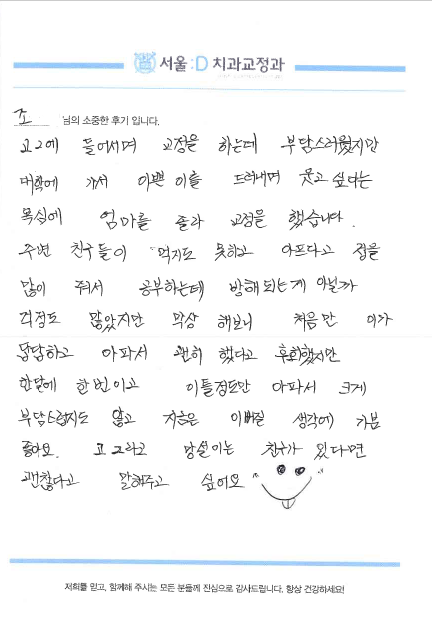 서울:D 치과교정과
조 님의 소중한 후기 입니다.
고2에 들어서며 교정을 하는데 부담스러웠지만
대학에 가서 이쁜 이를 드러내며 웃고 싶다는
욕심에 엄마를 졸라 교정을 했습니다.
주변 친구들이 먹지도 못하고 아프다고 겁을
많이 줘서 공부하는데 방해되는게 아닐까
걱정도 많았지만 막상 해보니 처음만 이가
아파서 괜히 했다고 후회했지만
한달에 한번이고 이틀정도만 아파서 크게
부담스럽지도 않고 지금은 이뻐질 생각에 기분
좋아요. 고2라고 망설이는 친구가 있다면
괜찮다고 말해주고 싶어요
저희를 믿고, 함께해 주시는 모든 분들께 진심으로 감사드립니다. 항상 건강하세요!